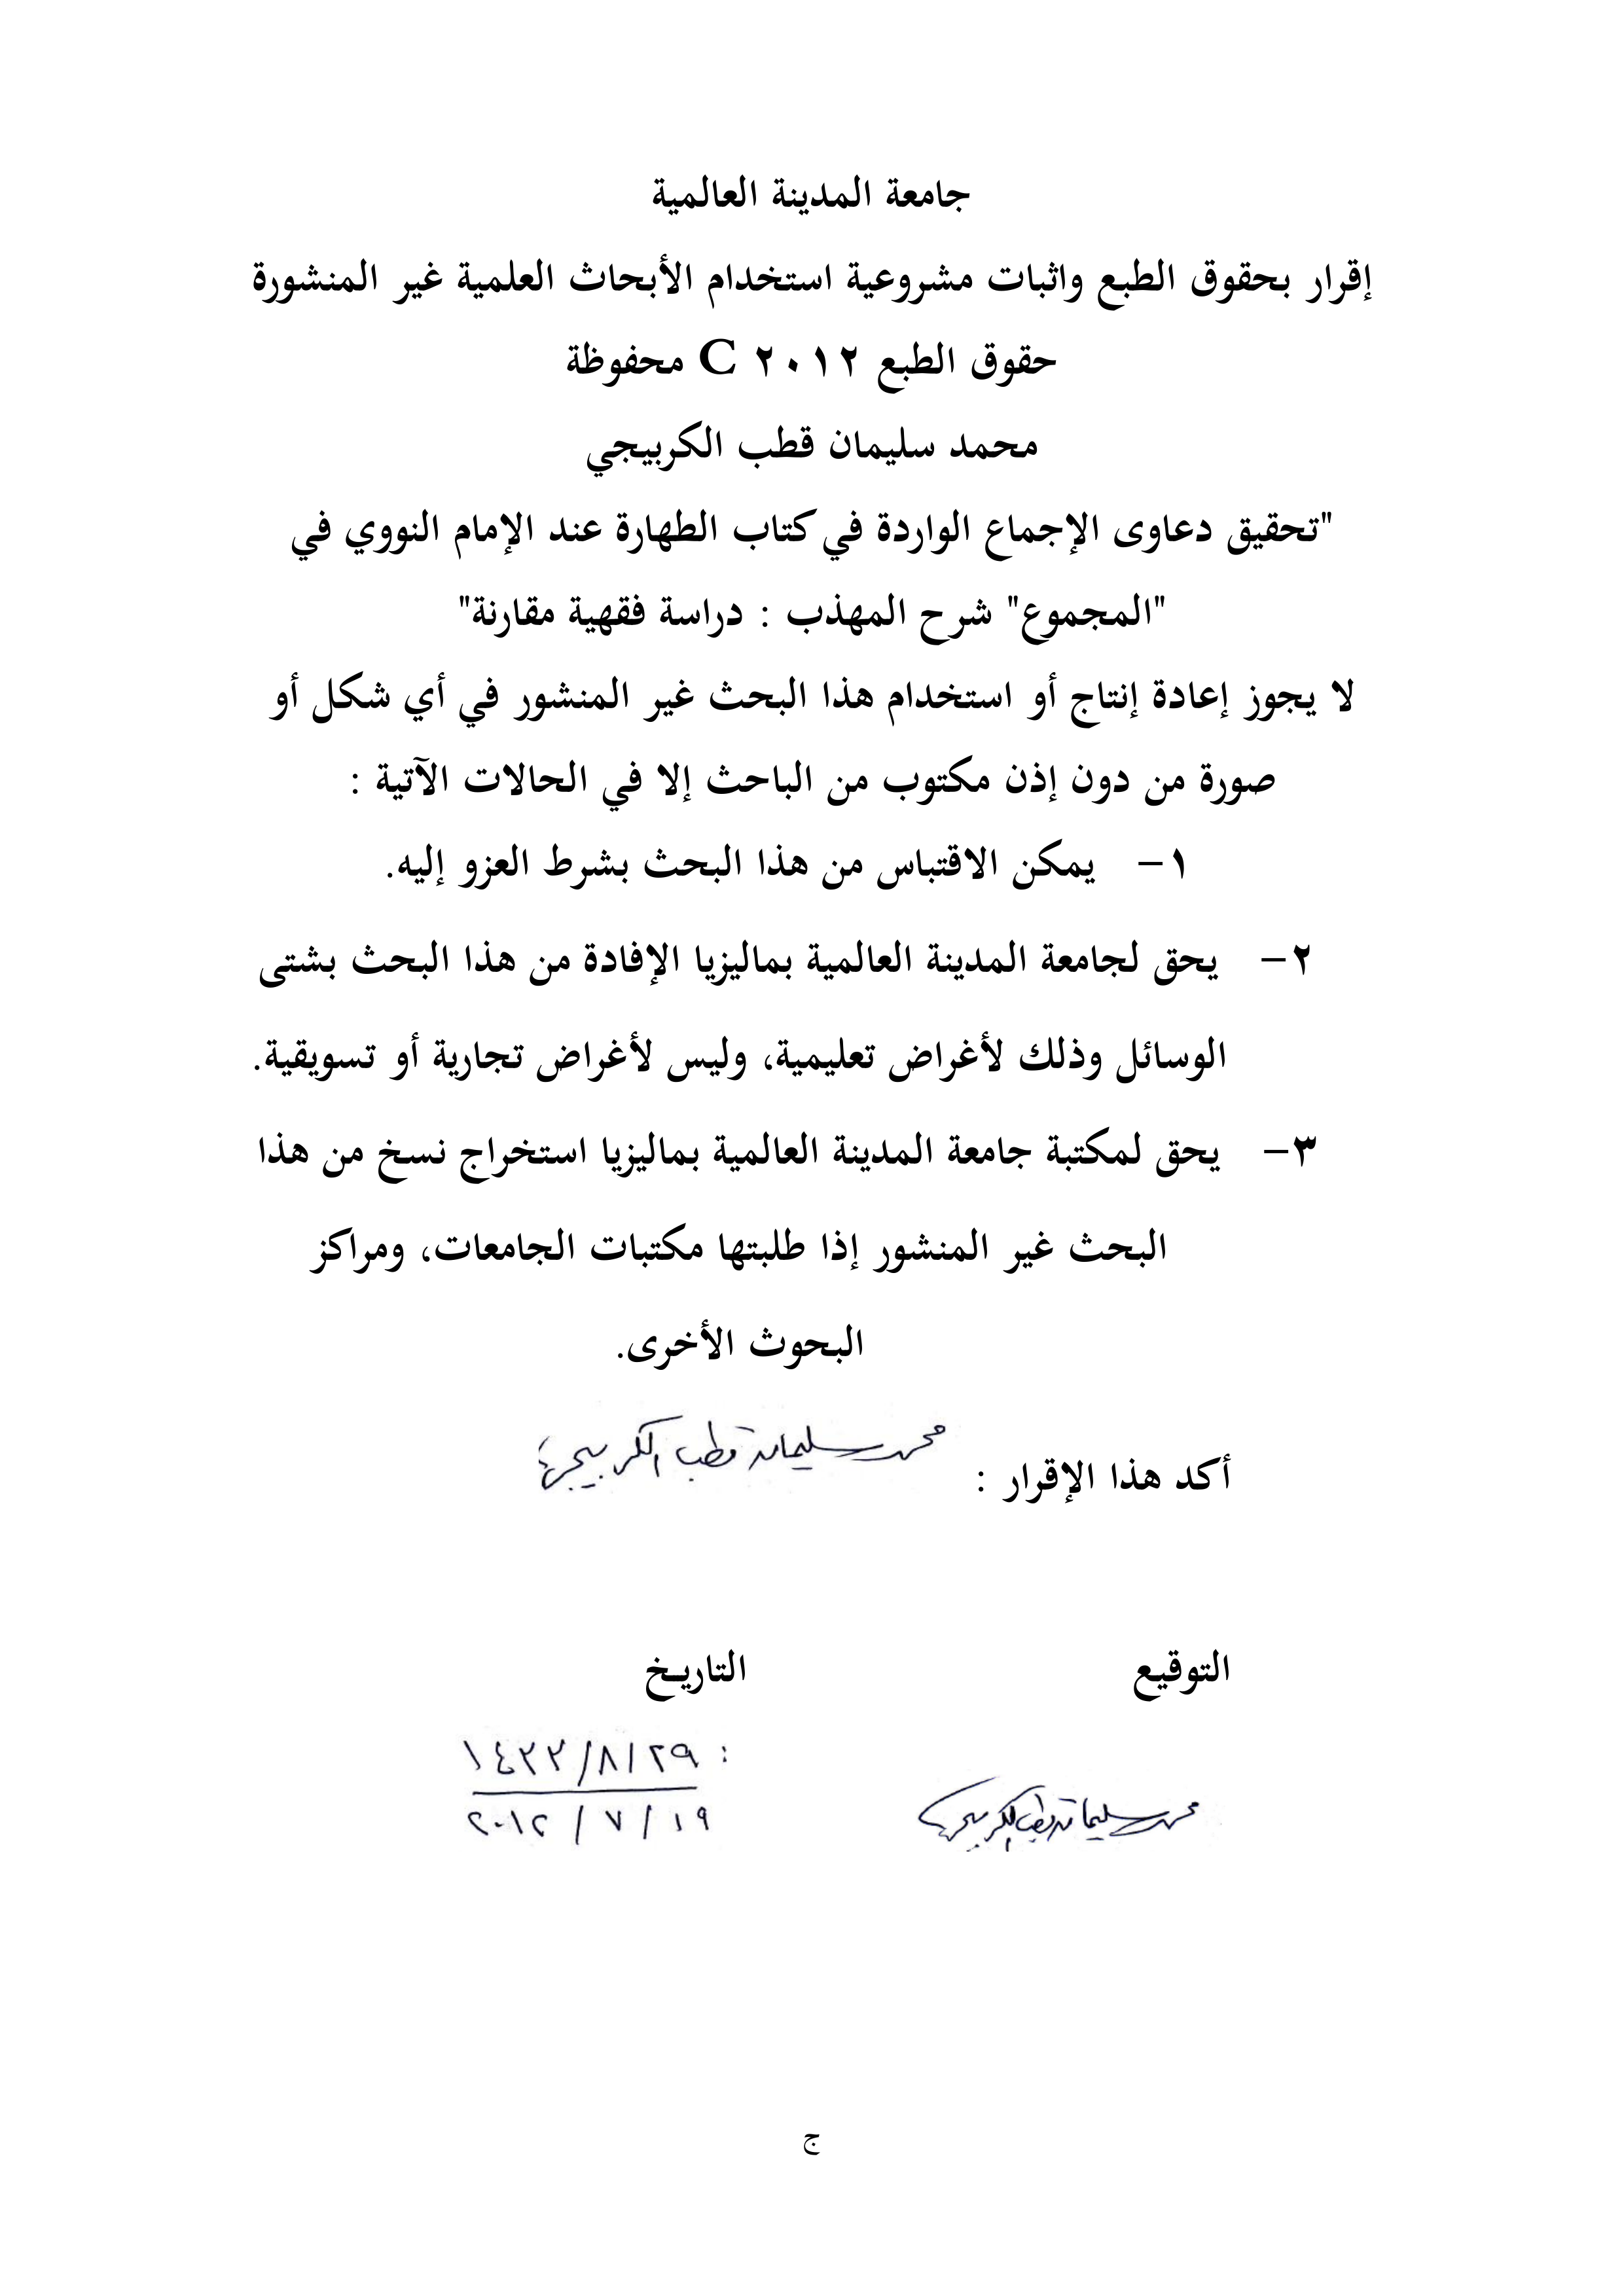 جامعة المدينة العالمية
إقرار بحقوق الطبع واثبات مشروعية استخدام الأبحاث العلمية غير المنشورة
حقوق الطبع ٢٠١٢ C محفوظة
محمد سليمان قطب الكربيجي
"تحقيق دعاوى الإجماع الواردة في كتاب الطهارة عند الإمام النووي في
"المجموع" شرح المهذب : دراسة فقهية مقارنة"
لا يجوز إعادة إنتاج أو استخدام هذا البحث غير المنشور في أي شكل أو
صورة من دون إذن مكتوب من الباحث إلا في الحالات الآتية :
١- يمكن الاقتباس من هذا البحث بشرط العزو إليه.
٢- يحق لجامعة المدينة العالمية بماليزيا الإفادة من هذا البحث بشتى
الوسائل وذلك لأغراض تعليمية، وليس لأغراض تجارية أو تسويقية.
٣- يحق لمكتبة جامعة المدينة العالمية بماليزيا استخراج نسخ من هذا
البحث غير المنشور إذا طلبتها مكتبات الجامعات، ومراكز
البحوث الأخرى.
أكد هذا الإقرار : محمد سليمان قطب الكربيجي
التوقيع التاريخ
: ١٤٣٣/٨/٢٩
محمد سليمان قطب الكربيجي ٢٠١٢/٧/١٩
ج